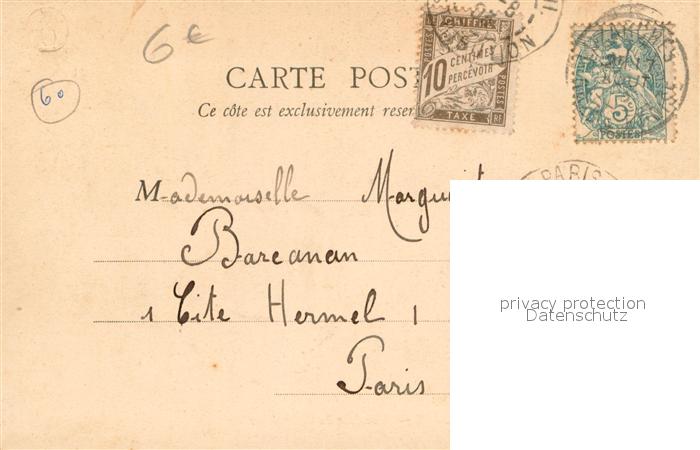 6€
60
CARTE POST
Ce côte est exclusivement reser
CHIFFRE
10 CENTIMES A PERCEVOIR
POSTES
TAXE
RF
5c
POSTES
PARIS
Mademoiselle Margueri
Barcanan
1 Cite Hermel 1
Paris
privacy protection
Datenschutz